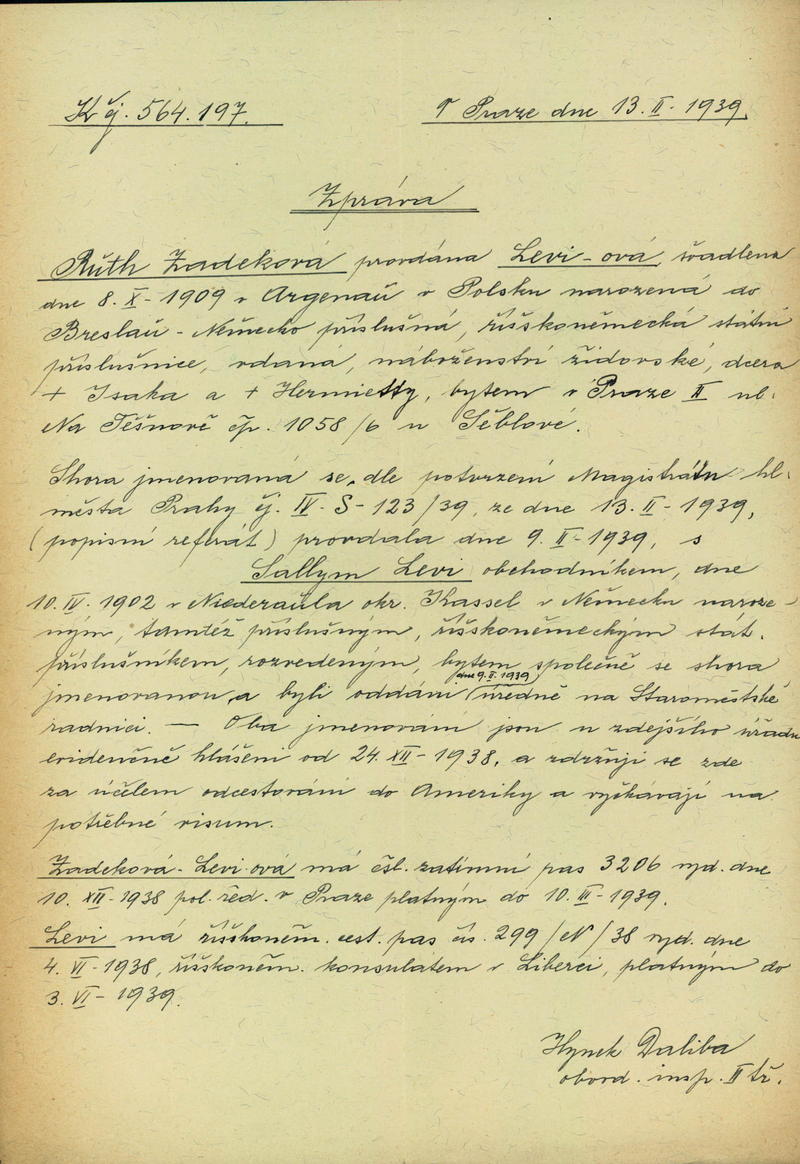 K čj. 564.197.
V Praze dne 13. II. - 1939.
Zpráva
Ruth Zadeková provdána Levi-ová, švadlena
dne 8. X - 1909 v Argenau v Polsku narozená do
Breslau - Německo příslušná, říšskoněmecká státní
příslušnice, vdaná, náboženství židovské, dcera
+ Isaka a + Hermietty, bytem v Praze II ul.
Na Těšnově čp. 1058/6 u Séblové.
Shora jmenovaná se, dle potvrzení Magistrátu hl.
města Prahy čj. IV. S - 123/39, ze dne 13. II - 1939,
(popisní referát) provdala dne 9. II - 1939, s
Sallym Levi obchodníkem, dne
10. IV. 1902 v Niederaula okr. Kassel v Německu naroze-
ným, tamtéž příslušným, říšskoněmeckým stát.
příslušníkem, rozvedeným, bytem společně se shora
jmenovanou a byli oddáni dne 9. II. 1939 úředně na Staroměstské
radnici. — Oba jmenovaní jsou u zdejšího úřadu
evidenčně hlášeni od 24. XII - 1938, a zdržují se zde
za účelem odcestování do Ameriky a vyčkávají na
potřebné visum.
Zadeková - Levi-ová má čsl. zatímní pas 3206 vyd. dne
10. XII - 1938 pol. řed. v Praze platným do 10. III - 1939.
Levi má říšskoněm. cest. pas čís. 299/N/38 vyd. dne
4. VI - 1938, říšskoněm. konsulátem v Liberci, platným do
3. VI - 1939.
Hynek Daliba
obvod. insp. II tř.